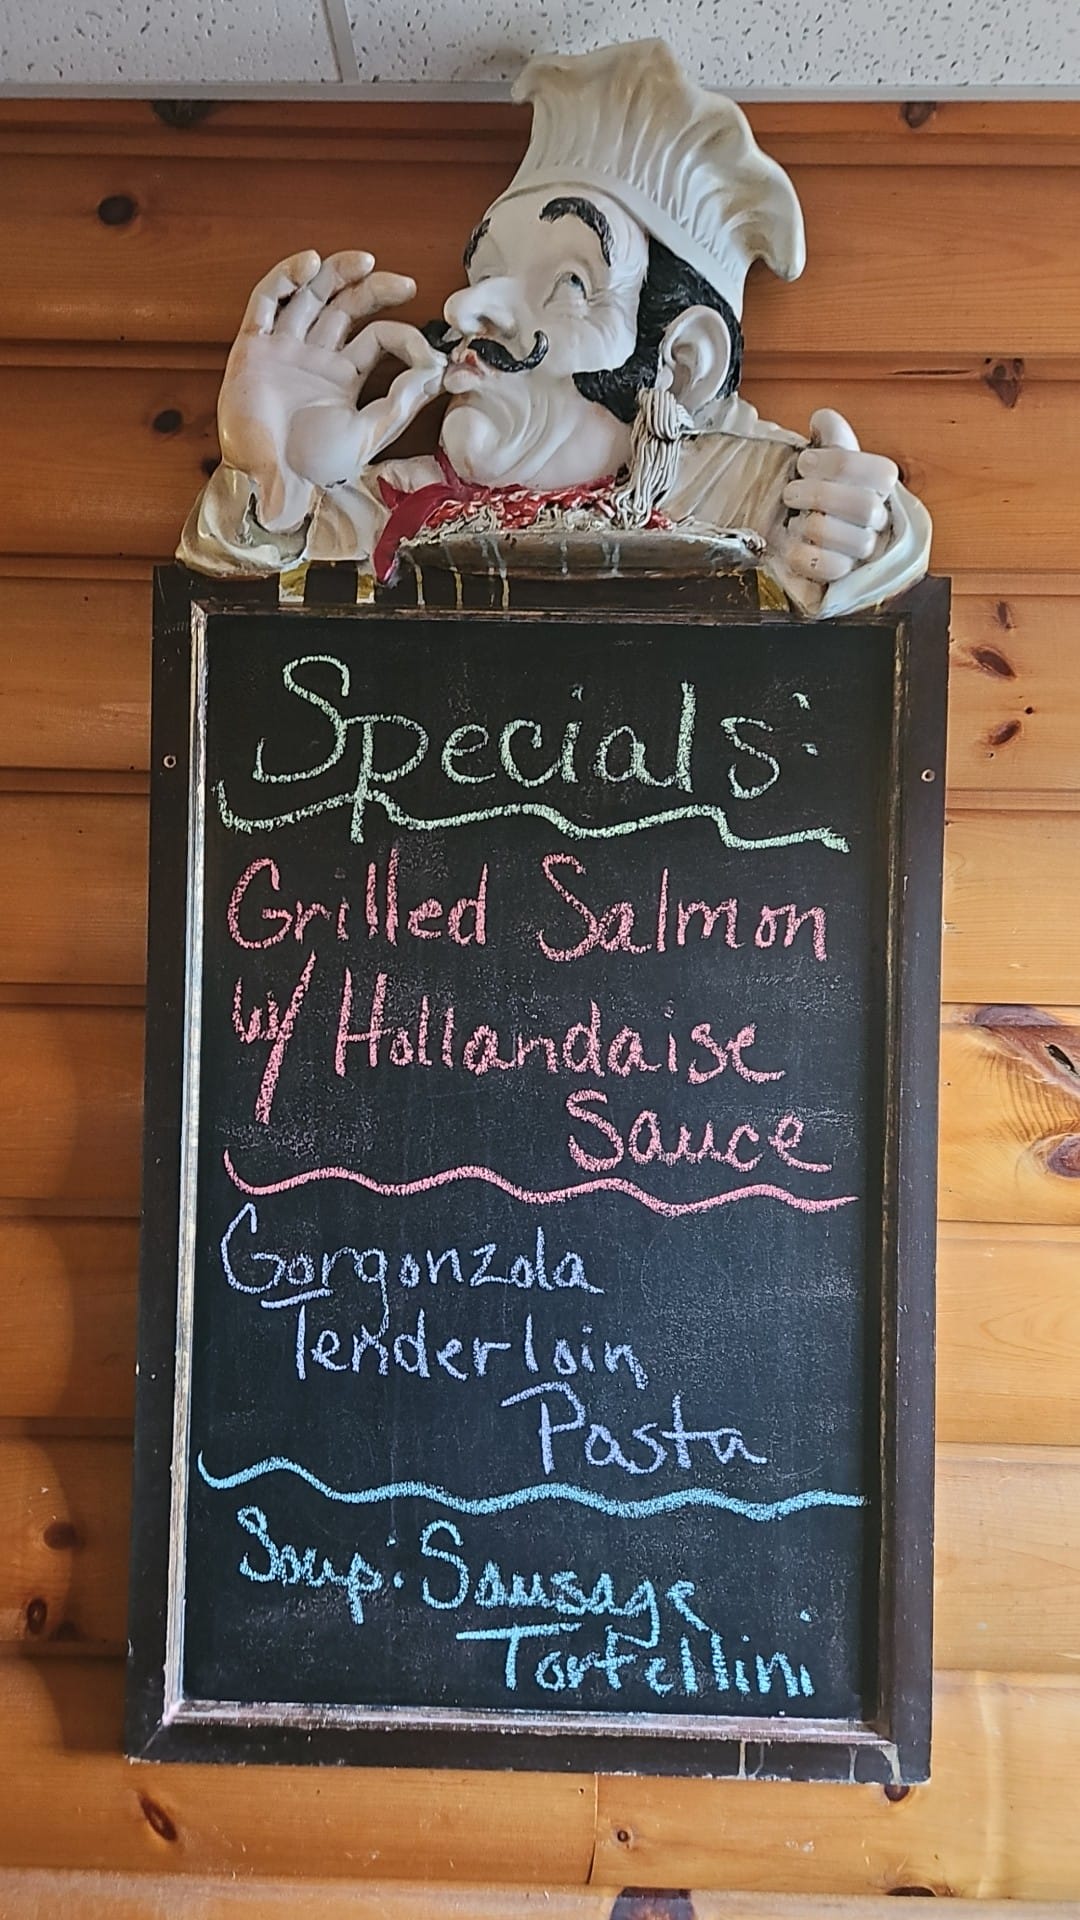 Specials:
Grilled Salmon
w/ Hollandaise
Sauce
Gorgonzola
Tenderloin
Pasta
Soup: Sausage
Tortellini